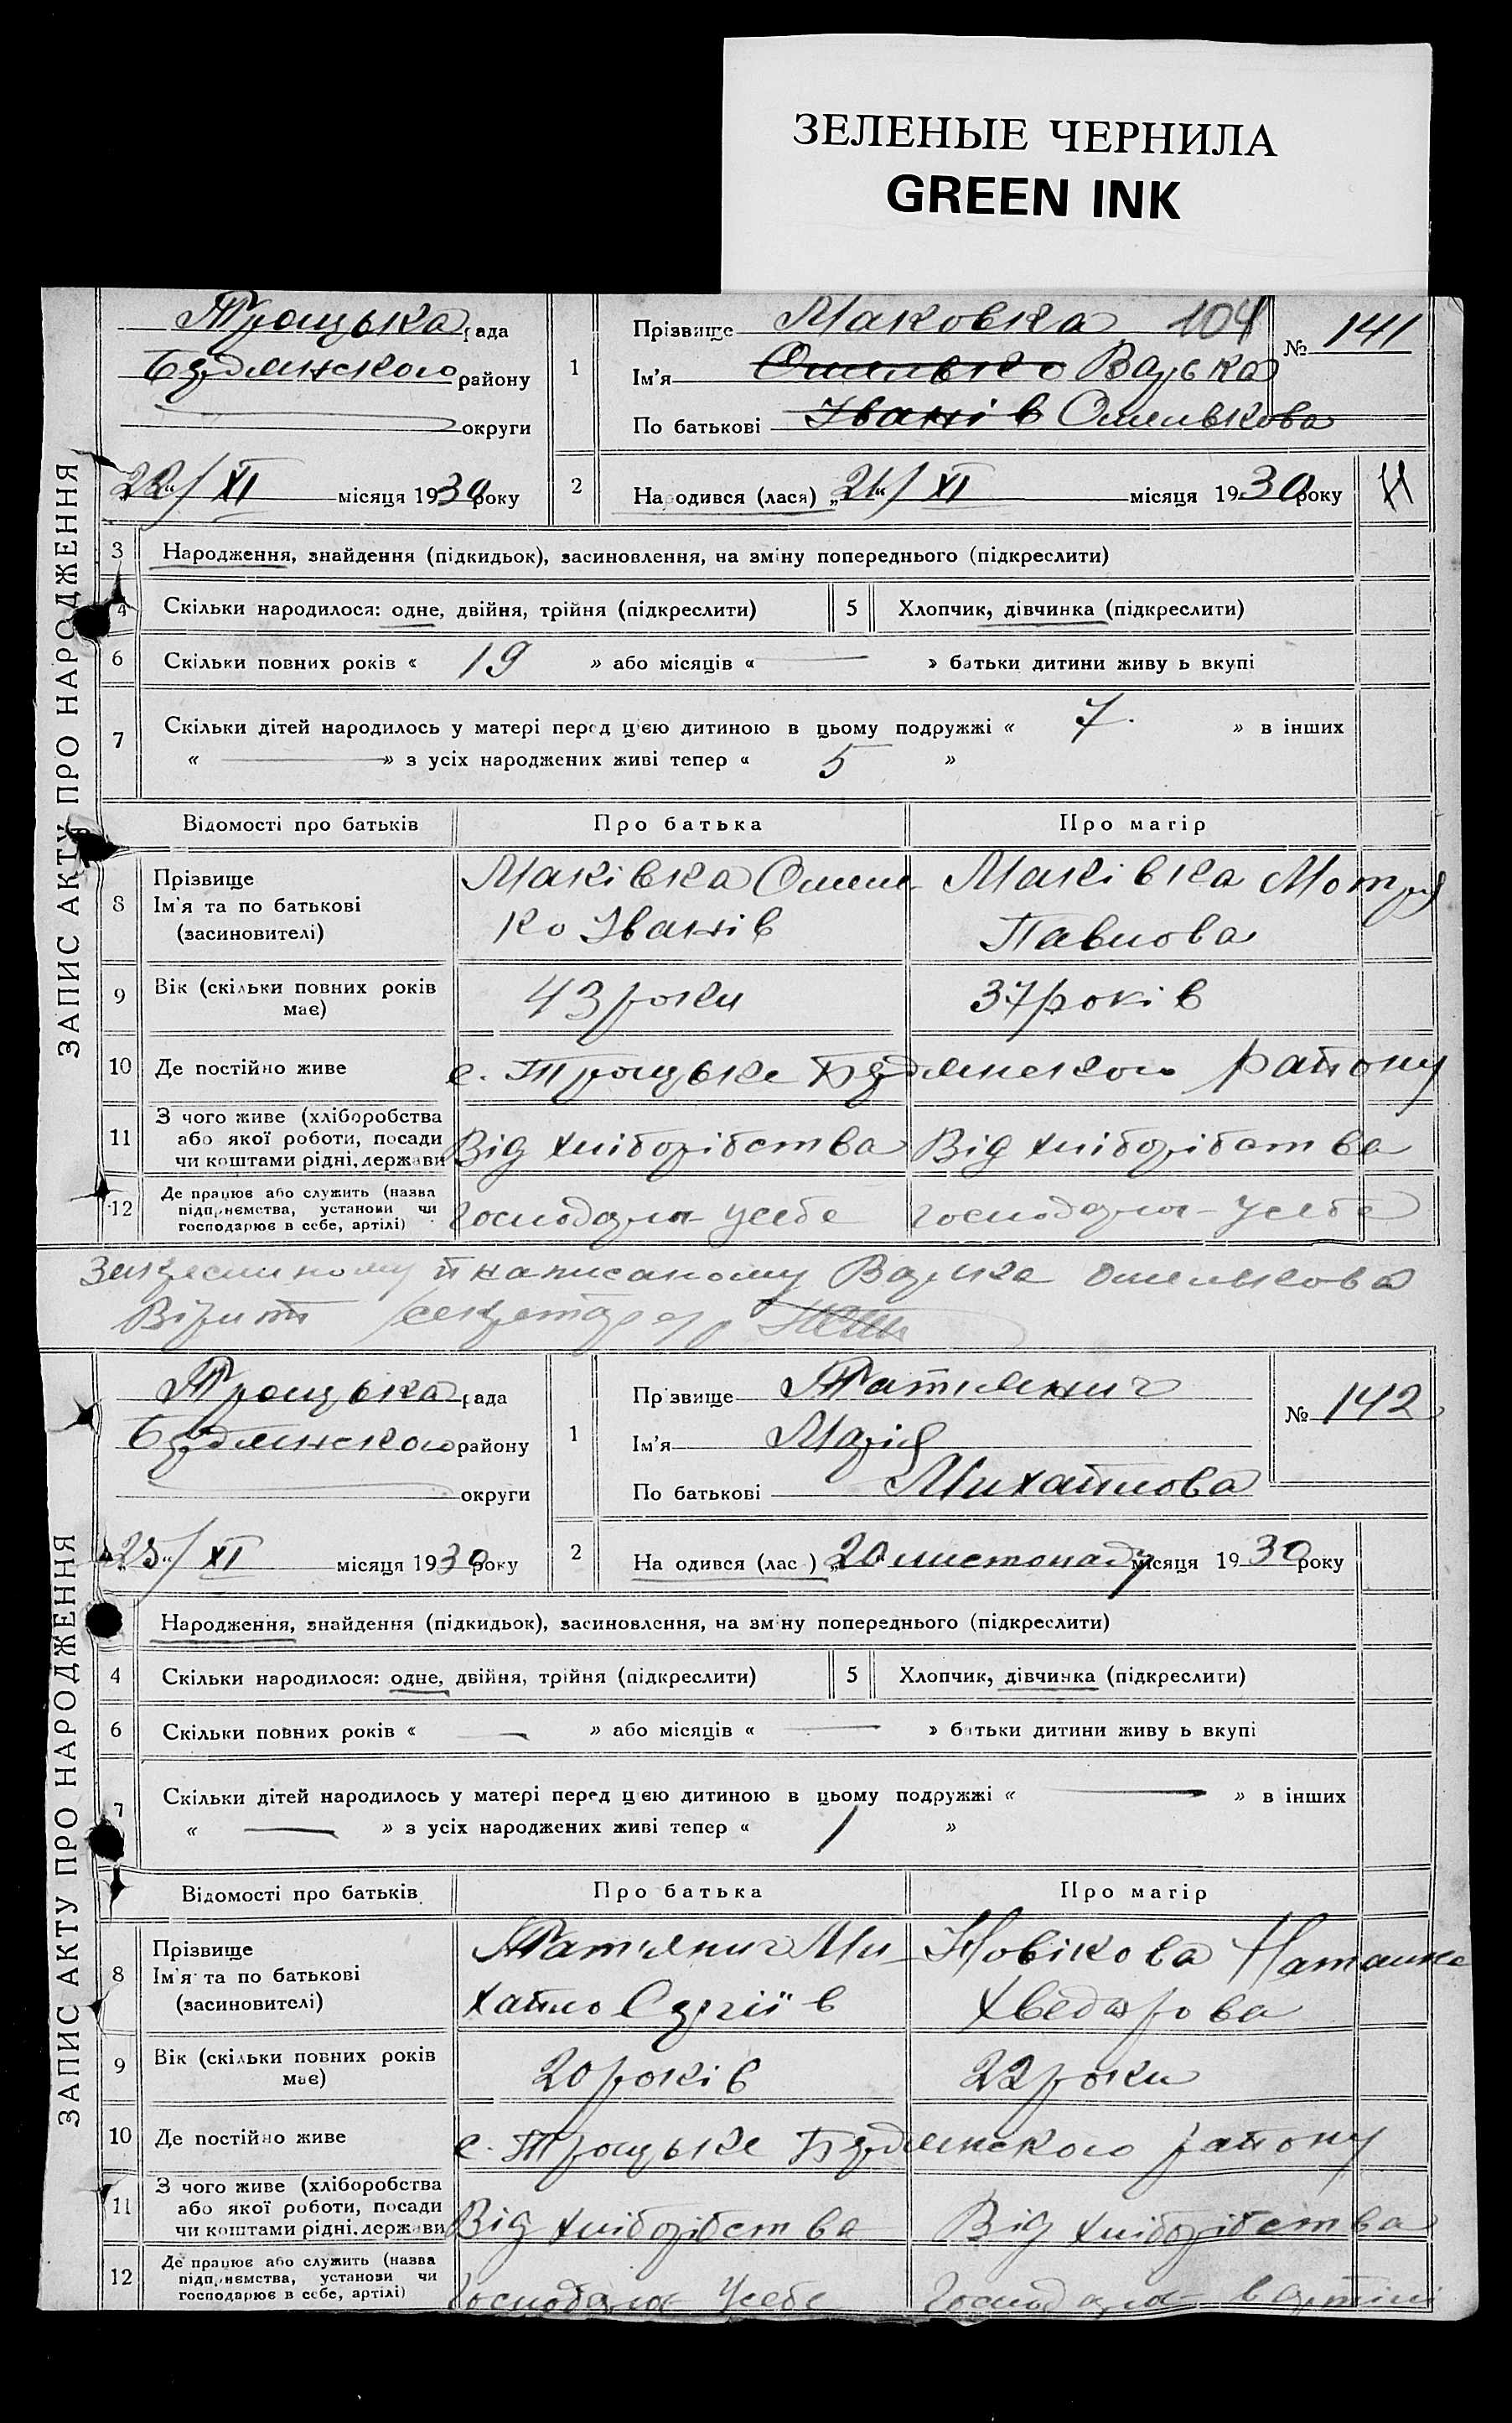 ЗЕЛЕНЫЕ ЧЕРНИЛА
GREEN INK
ЗАПИС АКТУ ПРО НАРОДЖЕННЯ
Троцька рада
Будянського району
округи
22/XI місяця 1930 року
1
Прізвище Маковка 104
Ім'я Омелько Варька
По батькові Іванів Омелькова
№ 141
2
Народився (лася) „21“/XI місяця 1930 року
3 Народження, знайдення (підкидьок), засиновлення, на зміну попереднього (підкреслити)
4 Скільки народилося: одне, двійня, трійня (підкреслити) 5 Хлопчик, дівчинка (підкреслити)
6 Скільки повних років « 19 » або місяців « — » батьки дитини живу ь вкупі
7 Скільки дітей народилось у матері перед цією дитиною в цьому подружжі « 7 » в інших
« — » з усіх народжених живі тепер « 5 »
Відомості про батьків Про батька Про матір
8 Прізвище Ім'я та по батькові (засновителі)
Маківка Омель-
ко Іванів
Маківка Мотря
Павлова
9 Вік (скільки повних років має) 43 роки 37 років
10 Де постійно живе с. Троцьке Будянского району
11 З чого живе (хліборобства або якої роботи, посади чи коштами рідні, держави Від хліборібства Від хліборібства
12 Де працює або служить (назва підприємства, установи чи господарює в себе, артілі) Господаря усебе Господаря - усебе
Закресленному й написаному Варька Омелькова
Вірити секретар
ЗАПИС АКТУ ПРО НАРОДЖЕННЯ
Троцька рада
Будянського району
округи
25/XI місяця 1930 року
1
Прізвище Татьянич
Ім'я Марія
По батькові Михайлова
№ 142
2
На одився (лас ) „20 листопаду місяця 1930 року
Народження, знайдення (підкидьок), засиновлення, на зміну попереднього (підкреслити)
4 Скільки народилося: одне, двійня, трійня (підкреслити) 5 Хлопчик, дівчинка (підкреслити)
6 Скільки повних років « — » або місяців « — » батьки дитини живу ь вкупі
7 Скільки дітей народилось у матері перед цією дитиною в цьому подружжі « — » в інших
« — » з усіх народжених живі тепер « 1 »
Відомості про батьків Про батька Про матір
8 Прізвище Ім'я та по батькові (засиновителі)
Татьянич Ми-
хайло Сергіїв
Новікова Наталка
Хведорова
9 Вік (скільки повних років має) 20 років 22 роки
10 Де постійно живе с. Троцьке Будянского району
11 З чого живе (хліборобства або якої роботи, посади чи коштами рідні, держави Від хліборібства Від хліборібства
12 Де працює або служить (назва підприємства, установи чи господарює в себе, артілі) Господаря усебе Господаря в артілі